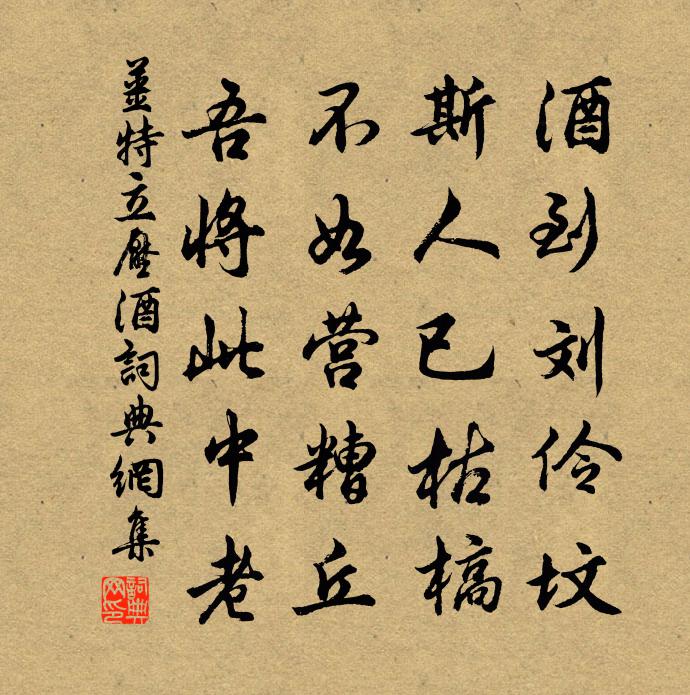 酒到刘伶坟
斯人已枯槁
不如营糟丘
吾将此中老
姜特立壓酒詞典網集
詞典网印